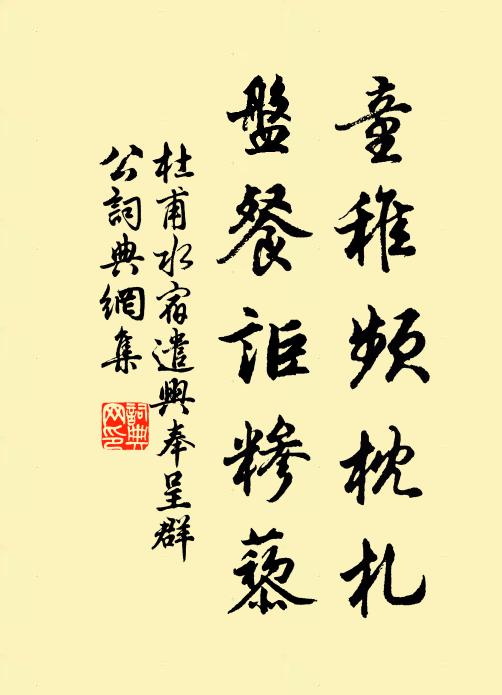 童稚頻枕札
盤餐詎糝藜
杜甫水宿遣興奉呈群
公詞典網集
詞典
网印